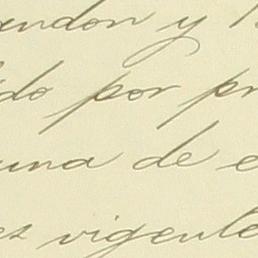 undon y
do por pr
una de e
ez vigente